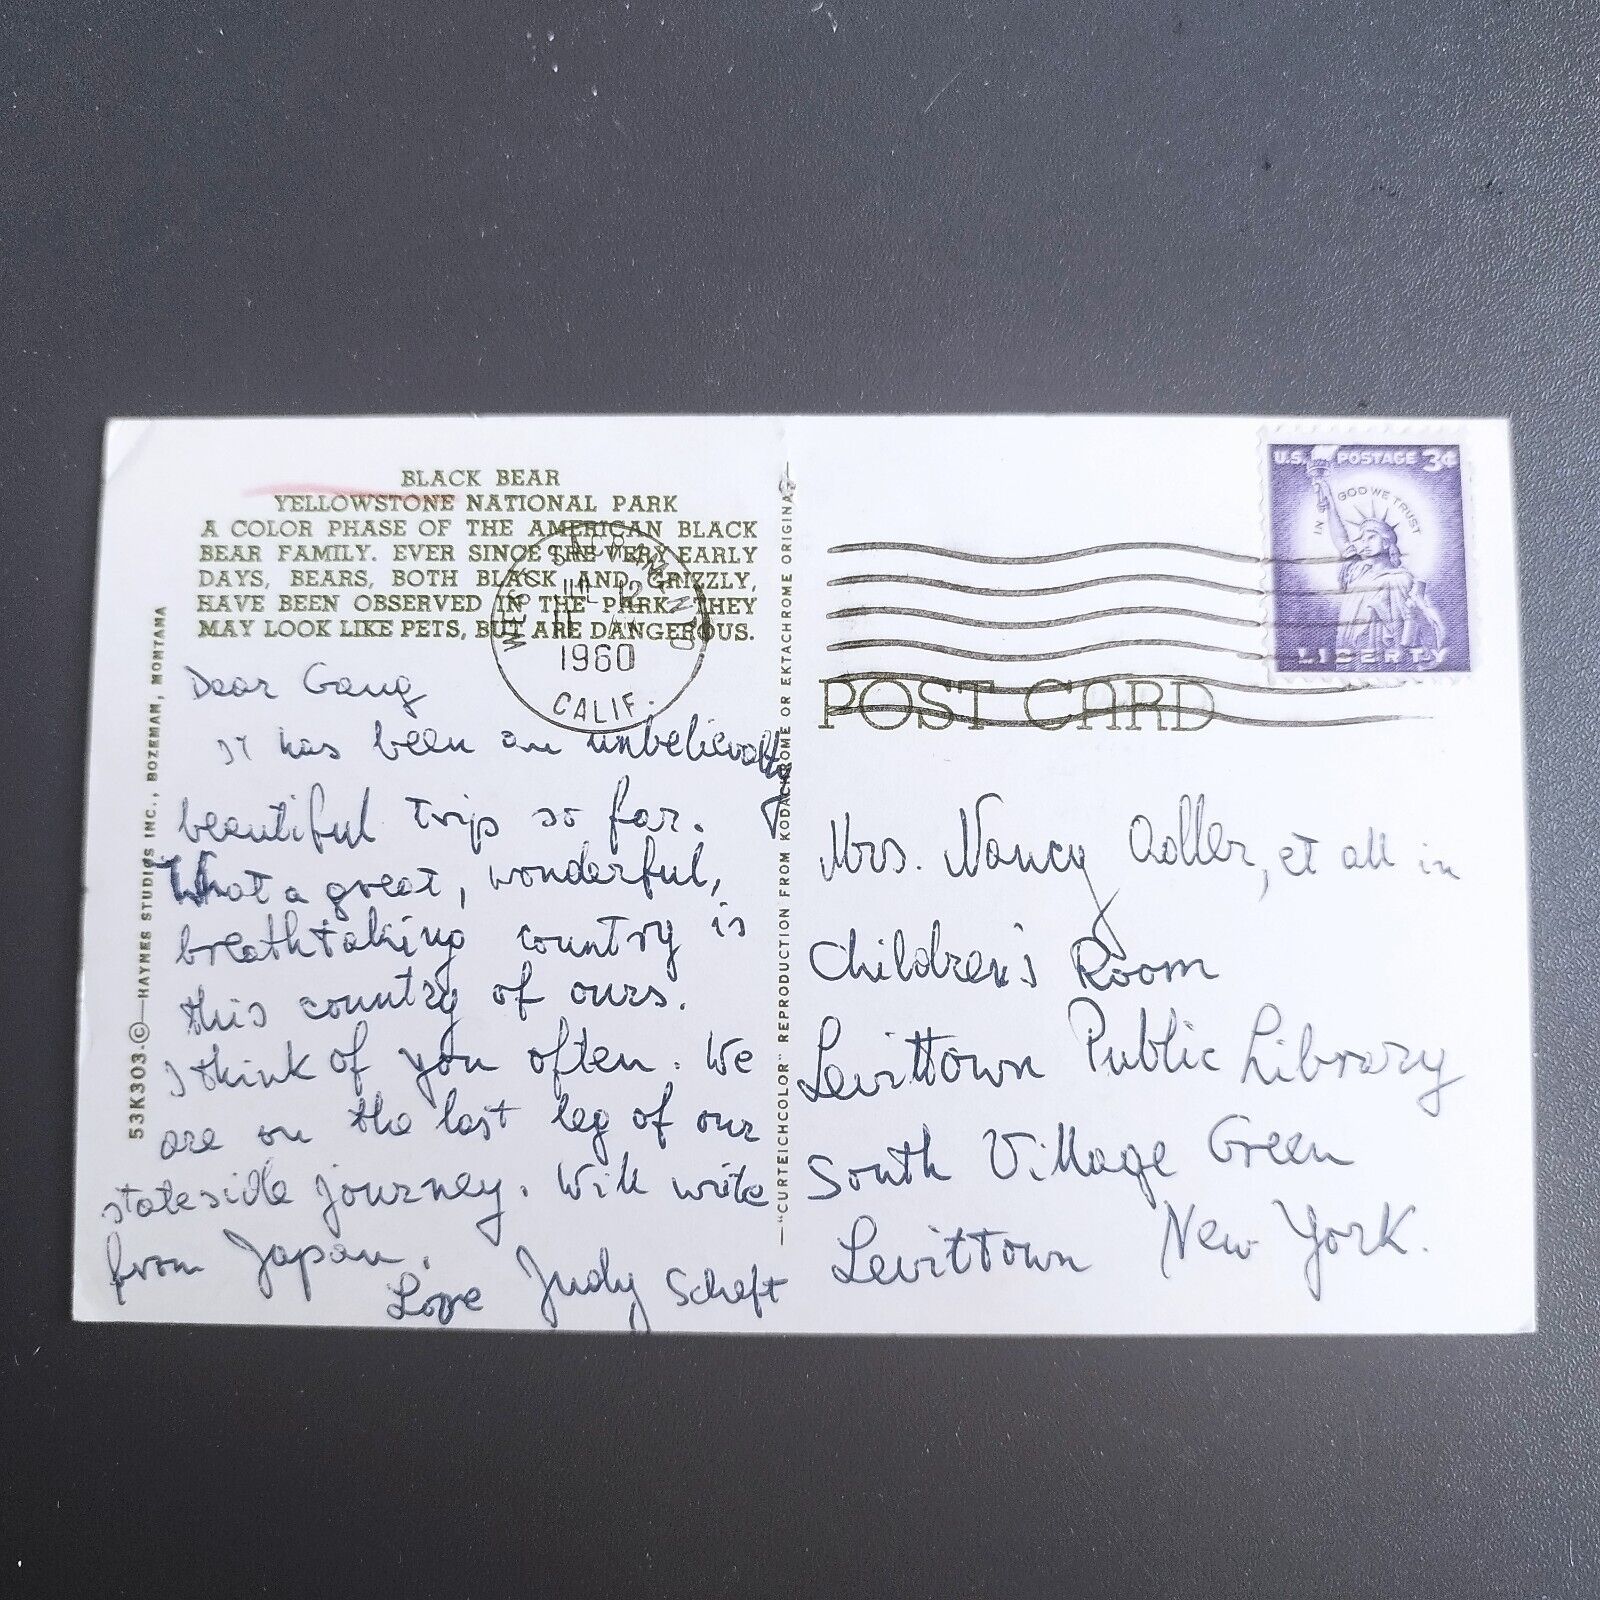 BLACK BEAR
YELLOWSTONE NATIONAL PARK
A COLOR PHASE OF THE AMERICAN BLACK
BEAR FAMILY. EVER SINCE THE VERY EARLY
DAYS, BEARS, BOTH BLACK AND GRIZZLY,
HAVE BEEN OBSERVED IN THE PARK. THEY
MAY LOOK LIKE PETS, BUT ARE DANGEROUS.
53K303-©—HAYNES STUDIOS INC., BOZEMAN, MONTANA
Dear Gang
It has been an unbelievably
beautiful trip so far.
What a great, wonderful,
breathtaking country is
this country of ours.
I think of you often. We
are on the last leg of our
stateside journey. Will write
from Japan.
Love Judy Scheft
WEST SACRAMENTO
JUL 12
1960
CALIF.
—"CURTEICHCOLOR" REPRODUCTION FROM KODACHROME OR EKTACHROME ORIGINALS—
U.S. POSTAGE 3¢
IN GOD WE TRUST
LIBERTY
POST CARD
Mrs. Nancy Adler, et all in
Children's Room
Levittown Public Library
South Village Green
Levittown New York.